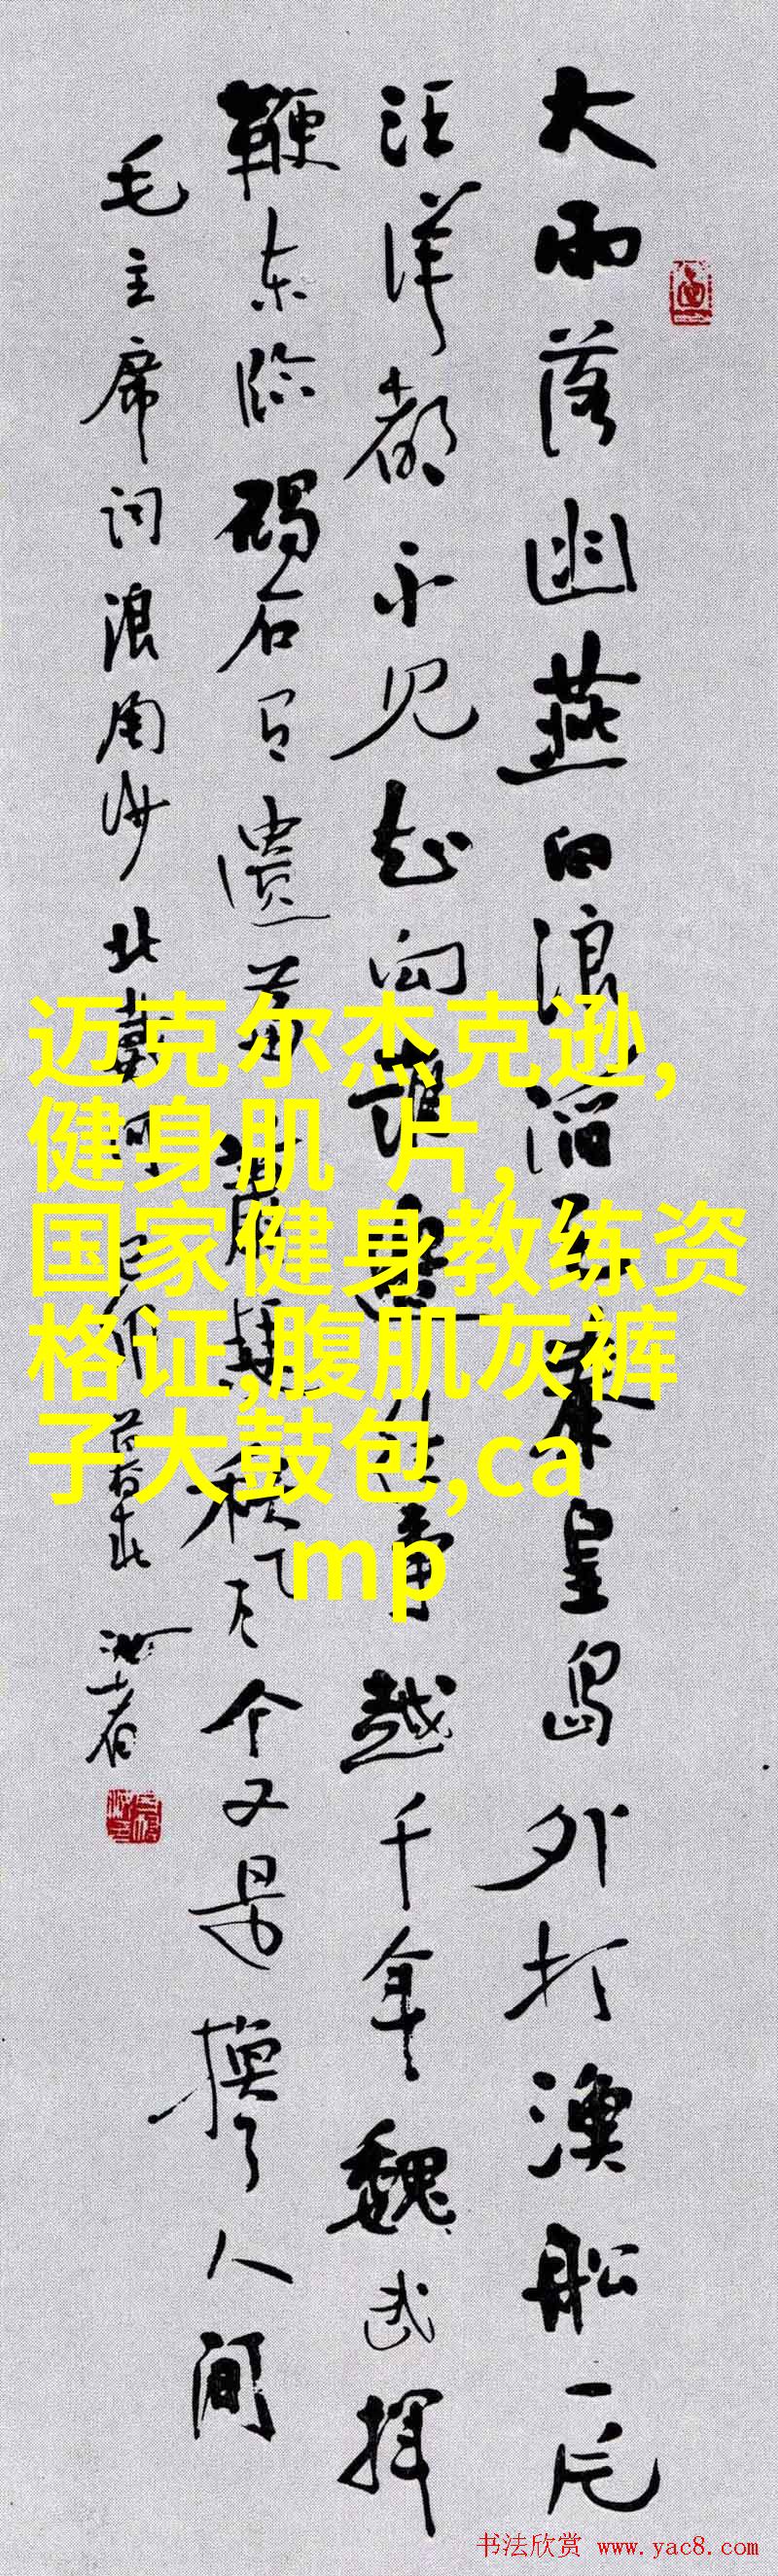 大雨落幽燕白浪滔天秦皇岛外打渔船一片
汪洋都不见知向谁边往事越千年魏武挥
鞭东临碣石有遗篇萧瑟秋风今又是换了人间
毛主席词浪淘沙北戴河
迈克尔杰克逊,
健身肌 片,
国家健身教练资
格证,腹肌灰裤
子大鼓包,ca
mp
书法欣赏 www.yac8.com